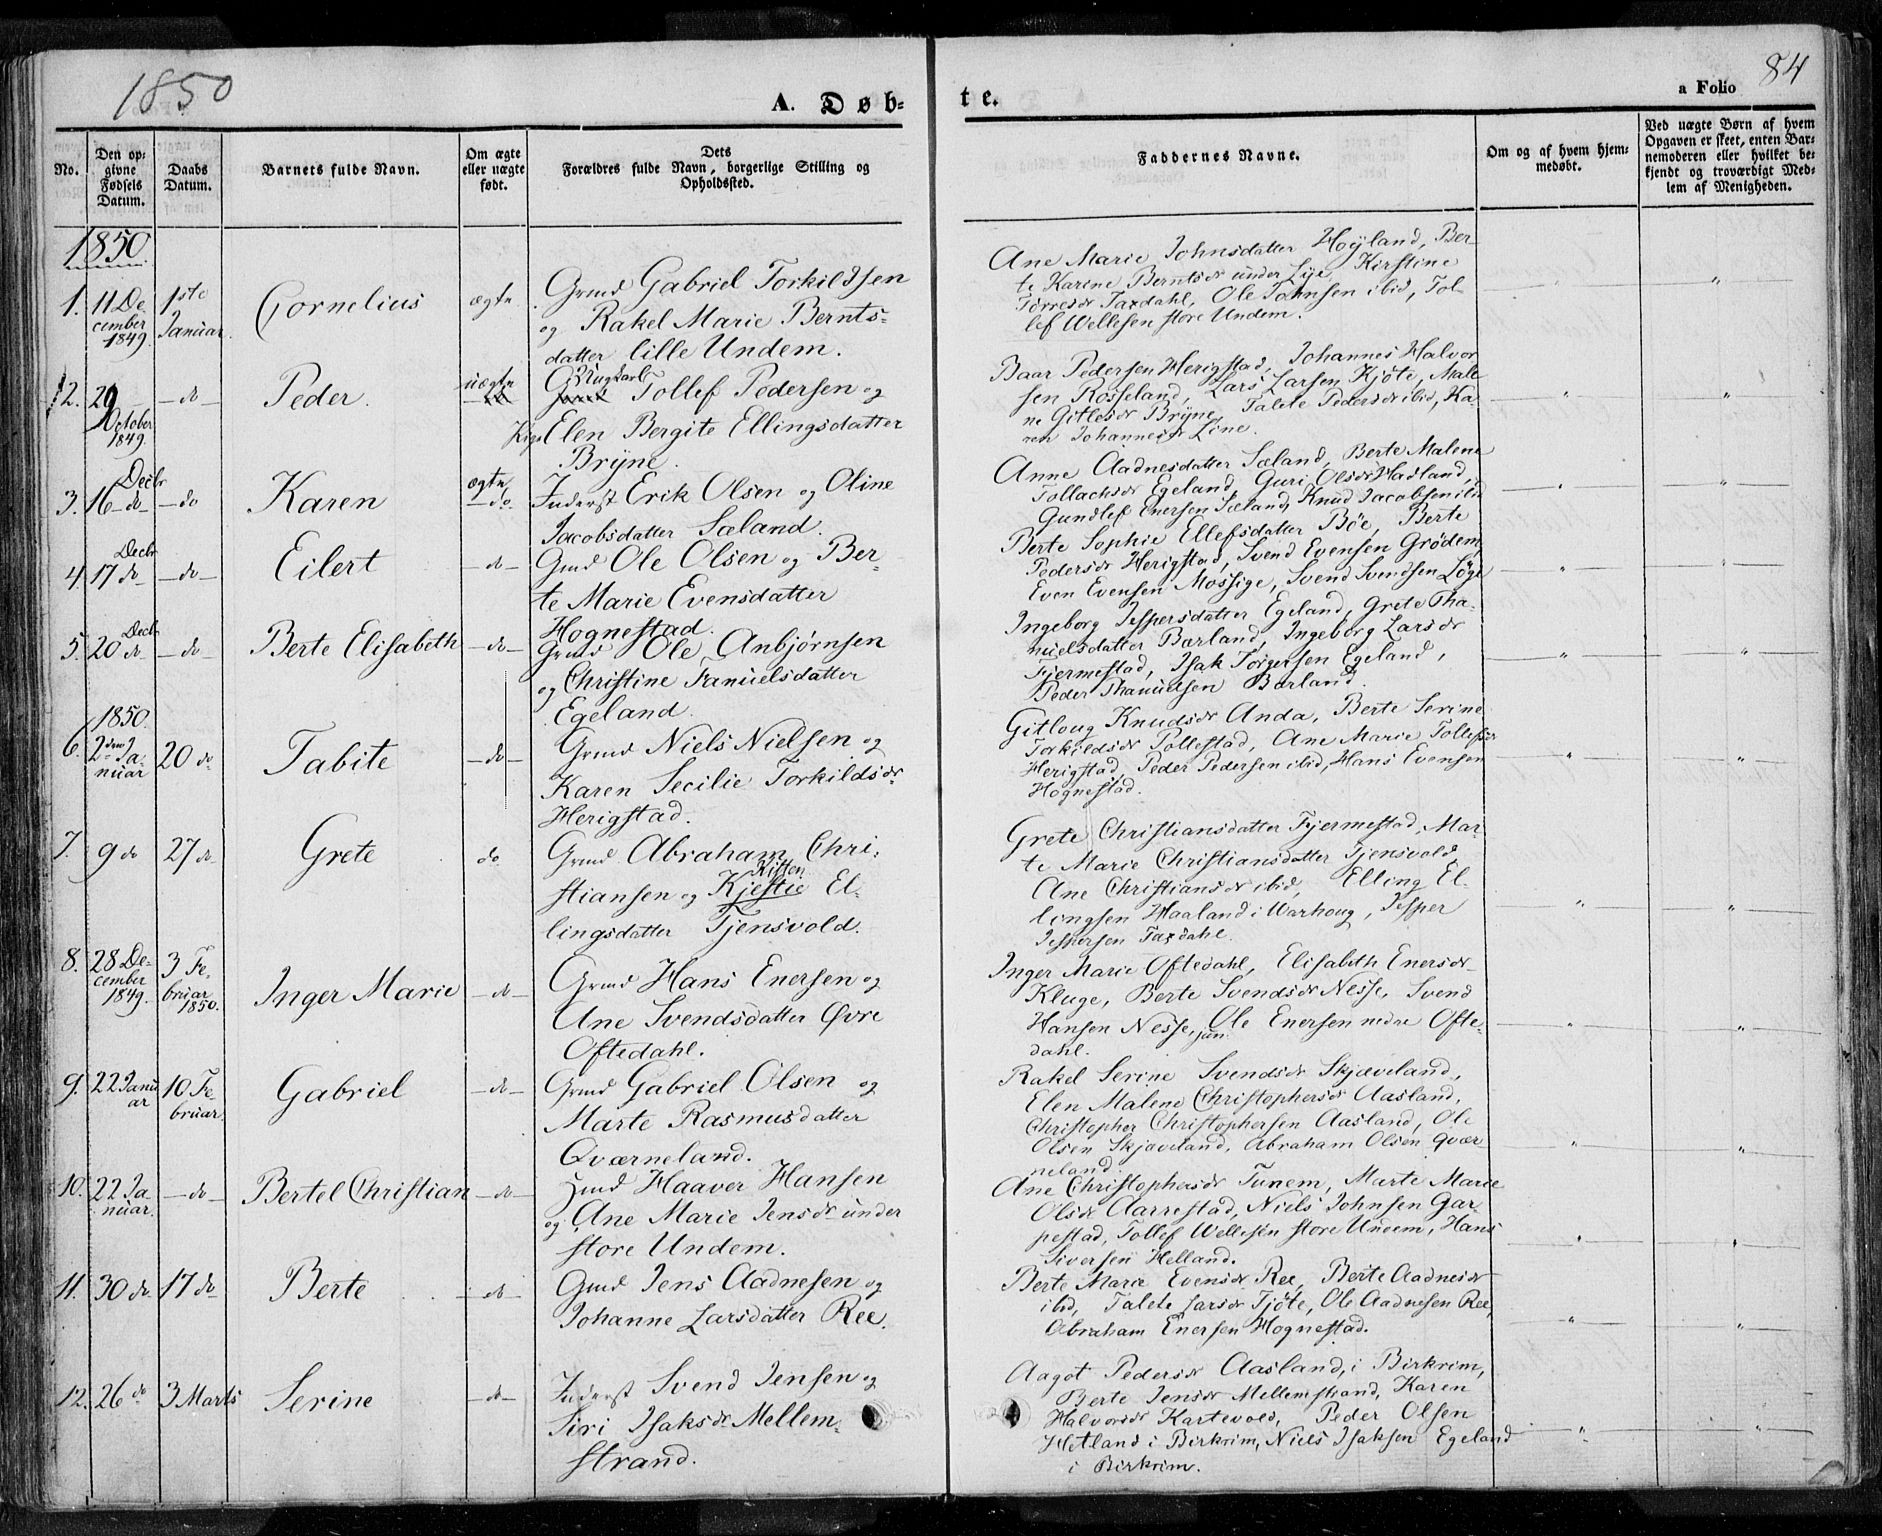 1850
A. Døb-
te.
a Folio
84
No.
Den op-
givne
Fødsels
Datum.
Daabs
Datum.
Barnets fulde Navn.
Om ægte
eller uægte
født.
Dets
Forældres fulde Navn, borgerlige Stilling og
Opholdssted.
Faddernes Navne.
Om og af hvem hjem-
medøbt.
Ved uægte Børn af hvem
Opgaven er skeet, enten Bar-
nemoderen eller hvilket be-
kjendt og troværdigt Med-
lem af Menigheden.
1850
1.
11 De-
cember
1849.
1ste
Januar.
Cornelius
ægte
Grmd Gabriel Torkildsen
og Rakel Marie Bernts-
datter lille Undem.
Ane Marie Johnsdatter Høyland, Ber-
te Karine Berntsdr under Lye, Kirstine
Torresdr Taxdahl, Ole Johnsen ibid, Tol-
lef Wellesen store Undem.
2.
29
October
1849.
- do -
Peder.
uægte
Ungkarl Tollef Pedersen og
Elen Bergite Ellingsdatter
Bryne.
Baar Pedersen Herigstad, Johannes Halvor-
sen Rosseland, Lars Larsen Kjøte, Male-
ne Gitlesdr Bryne, Talete Pedersdr ibid, Ka-
ren Johannesdr Line.
3.
Decbr
16 - do -
- do
Karen
ægte
- do.
Inderst Erik Olsen og Oline
Jacobsdatter Sæland.
Anne Aadnesdatter Sæland, Berte Malene
Tollachsdr Egeland, Guri Olsdr Hadland,
Gundlef Enersen Sæland, Knud Jacobsen ibid
4.
Decbr
17 do
- do -
Eilert
- do -
Gmd Ole Olsen og Ber-
te Marie Evensdatter
Hognestad.
Berte Sophie Ellefsdatter Bøe, Berte
Pedersdr Herigstad, Svend Evensen Grødem,
Even Evensen Mossige, Svend Svendsen Løge
5.
Decb.
20 do
- do -
Berte Elisabeth
- do -
Grmd Ole Anbjørnsen
og Christine Famuelsdatter
Egeland.
Ingeborg Jespersdatter Egeland, Grete Tha-
nuelsdatter Barland, Ingeborg Larsdr
Fjermestad, Isak Torgersen Egeland,
Peder Thanuelsen Barland.
1850.
6.
2den Ja-
nuar
20 do
Tabite
- do -
Grmd Niels Nielsen og
Karen Secilie Torkildsdr
Herigstad.
Gitloug Knudsdr Anda, Berte Serine
Torkildsdr Pollestad, Ane Marie Tollefsdr
Herigstad, Peder Pedersen ibid, Hans Evensen
Hognestad.
7.
9 do
27 do
Grete
do
Grmd Abraham Chri-
stiansen og Kjestie El-
lingsdatter Tjensvold.
Grete Christiansdatter Fjermestad, Mar-
te Marie Christiansdatter Tjensvold,
Ane Christiansdr ibid, Elling El-
lingsen Haaland i Warhoug, Jesper
Jespersen Taxdahl.
8.
28 De-
cember
1849.
3 Fe-
bruar
1850.
Inger Marie
- do -
Grmd Hans Enersen og
Ane Svendsdatter Øvre
Oftedahl.
Inger Marie Oftedahl, Elisabeth Enersdr
Kluge, Berte Svendsdr Nesse, Svend
Hansen Nesse, Ole Enersen nedre Ofte-
dahl.
9.
22 Janu-
ar
10 Fe-
bruar.
Gabriel
- do -
Grmd Gabriel Olsen og
Marte Rasmusdatter
Qværneland.
Rakel Serine Svendsdr Skjæveland,
Elen Malene Christophersdr Aasland,
Christopher Christophersen Aasland, Ole
Olsen Skjæveland, Abraham Olsen Qvær-
neland.
10.
22 Ja-
nuar.
- do -
Bertel Christian
- do -
Hmd Haaver Hansen
og Ane Marie Jensdr under
store Undem.
Ane Christophersdr Tunem, Marte Marie
Olsdr Aarrestad, Niels Johnsen Gar-
pestad, Tollef Wellesen store Undem, Hans
Siversen Helland.
11.
30 do
17 do
Berte
- do -
Gmd Jens Aadnesen og
Johanne Larsdatter Ree.
Berte Marie Evensdr Ree, Berte Aadnesdr
ibid, Talete Larsdr Tjøte, Ole Aadnesen Ree,
Abraham Enersen Hognestad.
12.
26 do
3 Marts
Serine
- do -
Inderst Svend Jensen og
Siri Isaksdr Mellem-
strand.
Aagot Pedersdr Aasland, i Birkrim,
Berte Jensdr Mellemstrand, Karen
Halvorsdr Kartevold, Peder Olsen
Hetland i Birkrim, Niels Isaksen Egeland
i Birkrim.